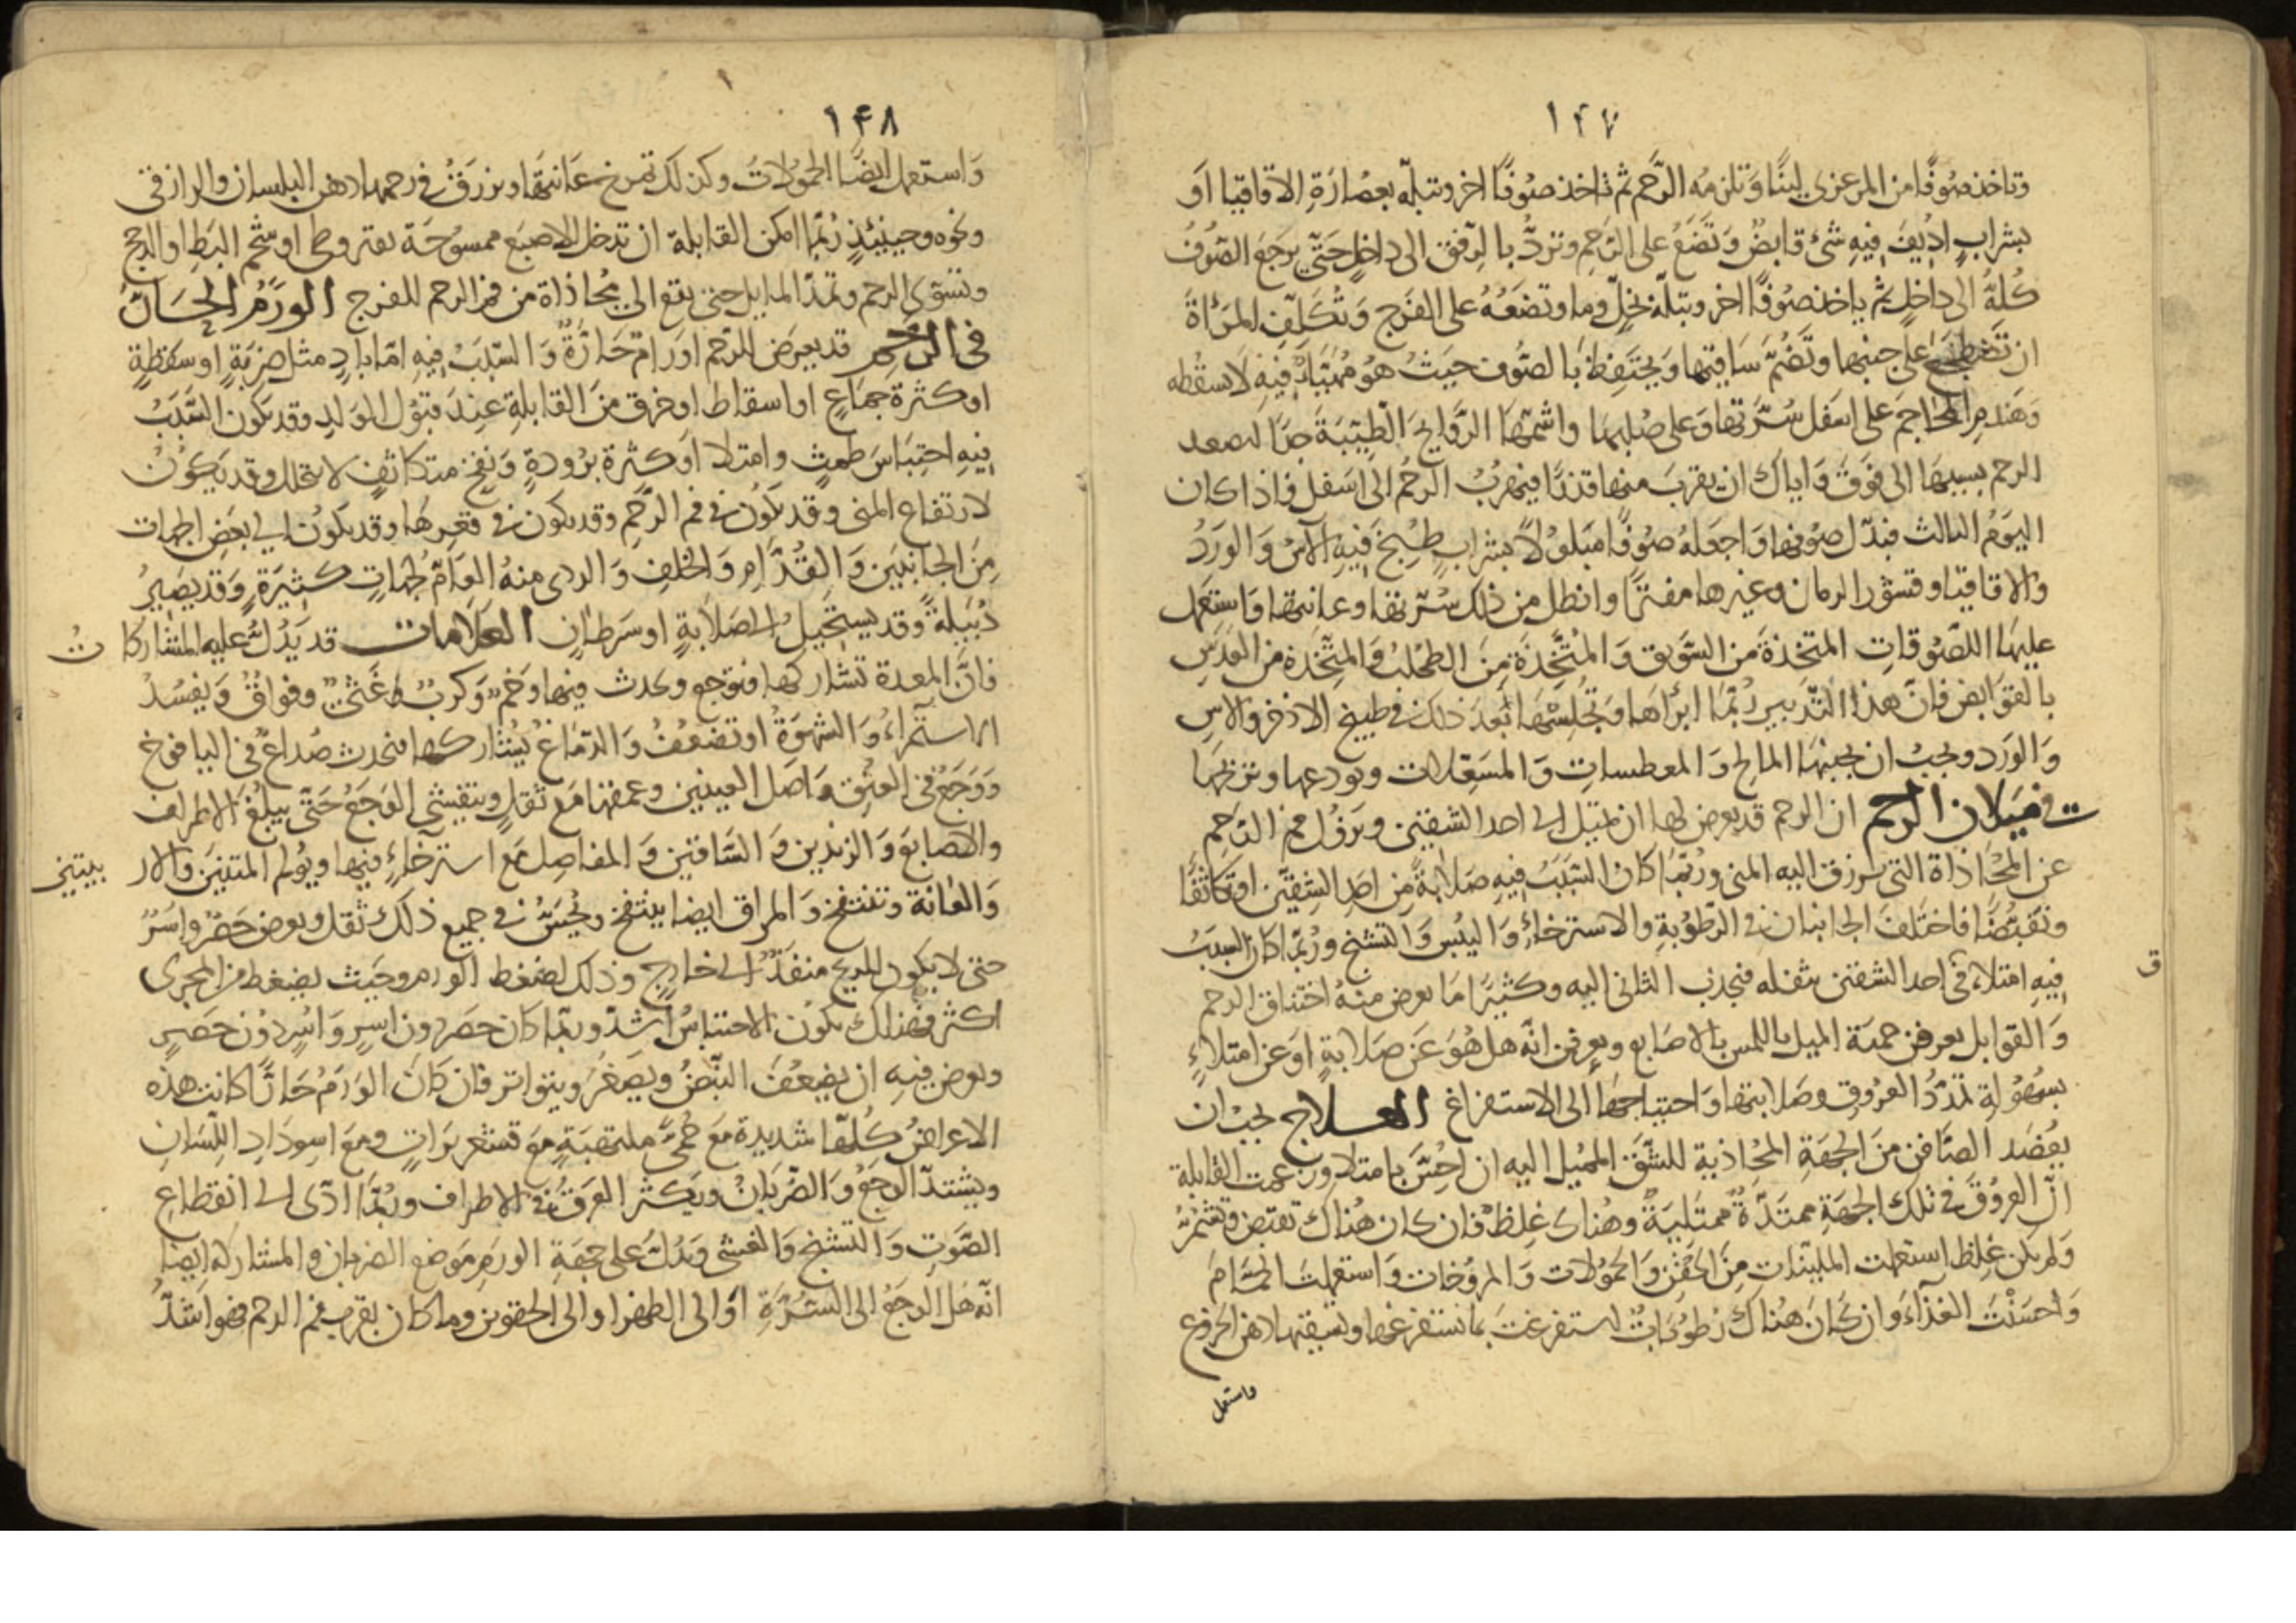 ١٤٧
وتاخذ صوفًا من المرعزى لينًا وتلزمه الرحم ثم تاخذ صوفًا اخر وتبله بعصارة الاقاقيا او
بشراب اديف فيه شئ قابض وتضع على الرحم وتردّ بالرفق الى داخل حتى يرجع الصوف
كله الى داخل ثم ياخذ صوفًا اخر وبتله بخلّ وما وتضعه على الفرج وتكلف المرأة
ان تضطجع على جنبها وتضم ساقيها ويحتفظ بالصوف حيث هو مهيأ فيه لا سقطه
وهندم المحاجم على اسفل سرتها وعلى صلبها واشمها الروايح الطيبة جدًا لصعد
الرحم بسببها الى فوق واياك ان يقرب منها قذرًا فيهرب الرحم الى اسفل فاذا كان
اليوم الثالث فبدّل صوفها واجعله صوفًا مبلولًا بشراب طبخ فيه الآس والورد
والاقاقيا وقشور الرمان وغيرها مفترًا وانطل من ذلك سرتها وعانتها واستعمل
عليها اللصوقات المتخذة من السويق والمتخذة من الطحلب والمتخذة من العدس
بالقوابض فان هذا التدبير ربما ابرأها وتجلسها بعد ذلك في طبيخ الاذخر والاس
والورد ويجب ان يجنبها المالح والمعطسات والمسعلات وتودعها وتريحها
في ميلان الرحم ان الرحم قد يعرض لها ان تميل الى احد الشقين ويزول فم الرحم
عن المحاذاة التى يزرق اليه المنى وربما كان السبب فيه صلابة من احد الشقين او تكاثفًا
وتقبضًا فاختلف الجانبان فى الرطوبة والاسترخاء واليبس والتشنج وربما كان السبب
فيه امتلاء فى احد الشقين بثقله فيجذب الثانى اليه وكثيرًا ما يعرض منه اختناق الرحم
ق
والقوابل يعرفن جهة الميل باللمس بالاصابع ويعرفن انه هل هو عن صلابة او عن امتلاء
بسهولة تمدد العروق وصلابتها واحتياجها الى الاستفراغ العلاج يجب ان
يفصد الصافن من الجهة المحاذية للشق المميل اليه ان احسّ بامتلا وزعمت القابلة
انّ العروق فى تلك الجهة ممتدة ممتلية وهناك غلظ فان كان هناك تقبض وتشمر
ولم يكن غلظ استعملت الملينات من الحقن والحمولات والمروخات واستعملت الحمام
واحسنت الغذاء وان كان هناك رطوبات استفرغت بما تستفرغها وتسقيها دهن الخروع
واستعمل
١٤٨
واستعمل ايضًا الحمولات وكذلك تمرخ عانتها ويزرق في رحمها دهن البلسان والرازقى
ونحوه وحينئذ ربما امكن القابلة ان تدخل الاصبع ممسوحة بقيروطى او شحم البط او الدجج
وتسوى الرحم وتمدّ المايل حتى يقع الى محاذاة من فم الرحم للفرج الورم الحار
فى الرحم قد يعرض للرحم اورام حارة والسبب فيه اما بادٍ مثل ضربة او سقطة
او كثرة جماع او اسقاط او خرق من القابلة عند قبول المولد وقد يكون السبب
فيه احتباس طمث وامتلا او كثرة برودة ونفخ متكاثف لا تتحلل وقد يكون
لارتفاع المنى وقد يكون فى فم الرحم وقد يكون فى قعرها وقد يكون الى بعض الجهات
من الجانبين والقدّام والخلف والردى منه العام لجهات كثيرة وقد يصير
دبيلة وقد يستحيل الى صلابة او سرطان العلامات قد يدل عليه المشاركات
فان المعدة تشاركها فتوجع ويحدث فيها وخم وكرب وغثى وفواق ويفسد
الاستمراء والشهوة او تضعف والدماغ يشاركها فيحدث صداع فى اليافوخ
ووجع فى العنق واصل العينين وعمقها مع ثقل ويتفشى الوجع حتى يبلغ الاطراف
والاصابع والزندين والساقين والمفاصل مع استرخاء فيها ويؤلم المتنين والاربيتين
والعانة وتنتفخ والمراق ايضا ينتفخ ويحسّ فى جميع ذلك ثقل ويعرض حصر واسر
حتى لا يكون للريح منفذ الى خارج وذلك لضغط الورم وحيث يضغط من المجرى
اكثر فهناك يكون الاحتباس اشدّ وربما كان حصر دون اسر واسر دون حصر
ويعرض فيه ان يضعف النبض ويصغر ويتواتر فان كان الورم حارًا كانت هذه
الاعراض كلها شديدة مع حمى ملتهبة مع قشعريرات ومع اسوداد اللسان
ويشتدّ الوجع والضربان ويكثر العرق فى الاطراف وربما ادّى الى انقطاع
الصوت والتشنج والغشى ويدل على جهة الورم موضع الضربان والمشاركة ايضا
انه هل الوجع الى السرة او الى الظهر او الى الحقوين وما كان بقرب فم الرحم فهو اشدّ